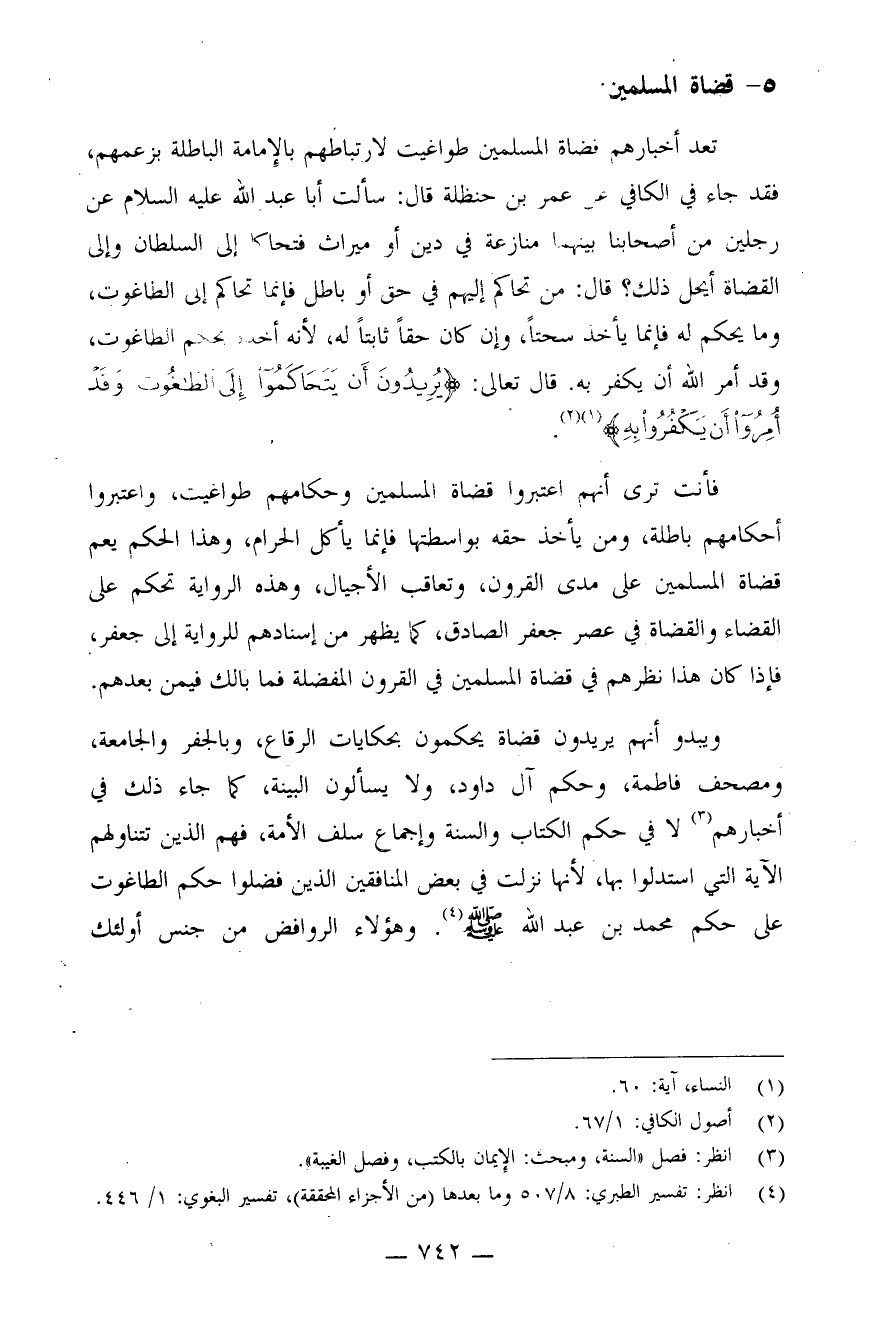 ٥- قضاة المسلمين
تعد أخبارهم قضاة المسلمين طواغيت لارتباطهم بالإمامة الباطلة بزعمهم،
فقد جاء في الكافي عن عمر بن حنظلة قال: سألت أبا عبد الله عليه السلام عن
رجلين من أصحابنا بينهما منازعة في دين أو ميراث فتحاكما إلى السلطان وإلى
القضاة أيحل ذلك؟ قال: من تحاكم إليهم في حق أو باطل فإنما تحاكم إلى الطاغوت،
وما يحكم له فإنما يأخذ سحتاً، وإن كان حقاً ثابتاً له، لأنه أخذه بحكم الطاغوت،
وقد أمر الله أن يكفر به. قال تعالى: ﴿يُرِيدُونَ أَن يَتَحَاكَمُوٓا۟ إِلَى ٱلطَّٰغُوتِ وَقَدْ
أُمِرُوٓا۟ أَن يَكْفُرُوا۟ بِهِ﴾(١)(٢).
فأنت ترى أنهم اعتبروا قضاة المسلمين وحكامهم طواغيت، واعتبروا
أحكامهم باطلة، ومن يأخذ حقه بواسطتها فإنما يأكل الحرام، وهذا الحكم يعم
قضاة المسلمين على مدى القرون، وتعاقب الأجيال، وهذه الرواية تحكم على
القضاء والقضاة في عصر جعفر الصادق، كما يظهر من إسنادهم للرواية إلى جعفر،
فإذا كان هذا نظرهم في قضاة المسلمين في القرون المفضلة فما بالك فيمن بعدهم.
ويبدو أنهم يريدون قضاة يحكمون بحكايات الرقاع، وبالجفر والجامعة،
ومصحف فاطمة، وحكم آل داود، ولا يسألون البينة، كما جاء ذلك في
أخبارهم(٣) لا في حكم الكتاب والسنة وإجماع سلف الأمة، فهم الذين تتناولهم
الآية التي استدلوا بها، لأنها نزلت في بعض المنافقين الذين فضلوا حكم الطاغوت
على حكم محمد بن عبد الله ﷺ(٤). وهؤلاء الروافض من جنس أولئك
(١) النساء، آية: ٦٠.
(٢) أصول الكافي: ٦٧/١.
(٣) انظر: فصل «السنة، ومبحث: الإيمان بالكتب، وفصل الغيبة».
(٤) انظر: تفسير الطبري: ٥٠٧/٨ وما بعدها (من الأجزاء المحققة)، تفسير البغوي: ١/ ٤٤٦.
— ٧٤٢ —